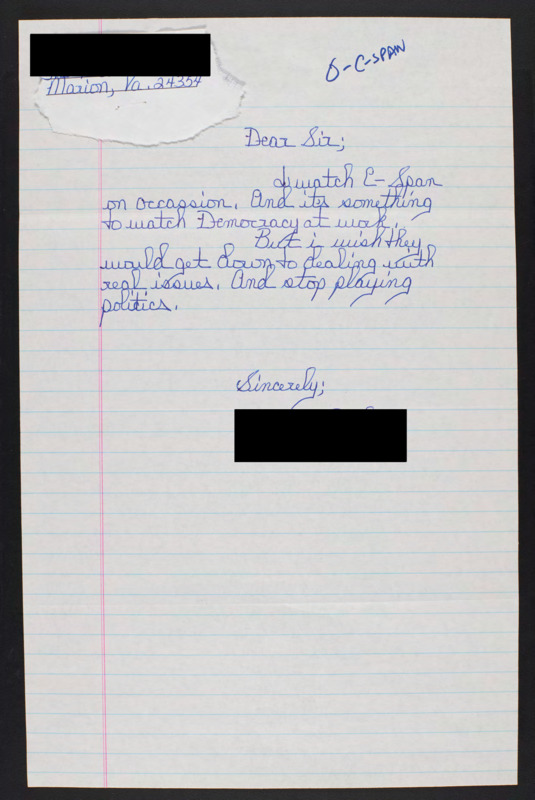 Marion, Va. 24354
O-C-SPAN
Dear Sir;
I watch C-Span
on occassion. And its something
to watch Democracy at work.
But i wish they
would get down to dealing with
real issues. And stop playing
politics.
Sincerely;